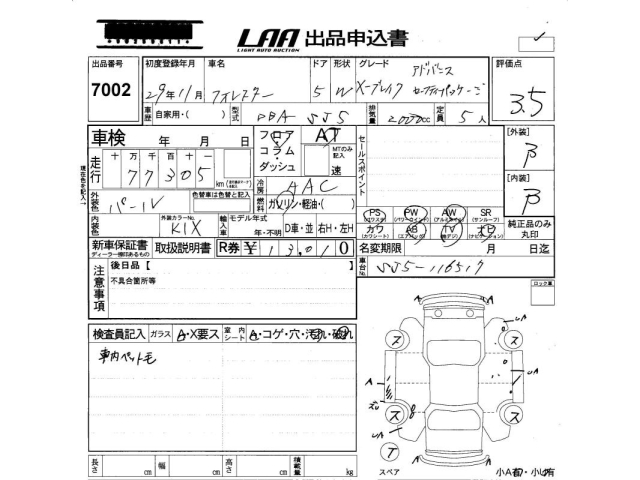 LAA 出品申込書
LIGHT AUTO AUCTION
出品番号 7002
初度登録年月 29年11月
車名 フォレスター
ドア 5
形状 W
グレード X-ブレイク アドバンス セーフティパッケージ
評価点 3.5
車歴 自家用・( )
型式 DBA SJ5
排気量 2000cc
定員 5人
車検 年 月 日
フロア コラム・ダッシュ AT
MTのみ記入 速
セールスポイント
[外装] B
[内装] B
走行 十万千百十一 77305 km
冷房 AAC
現在色を記入
外装色 パール
色替車は色替と記入
燃料 ガソリン・軽油・( )
PS (パワステ) PW (パワーウインドウ) AW (アルミホイール) SR (サンルーフ)
カワ (カワシート) AB (エアバッグ) TV ナビ (ナビゲーション)
純正品のみ丸印
内装色
外装カラーNo. K1X
輸入車 モデル年式 年・不明 D車・並 右H・左H
新車保証書 ディーラー捺印あるもの
取扱説明書
R券 ¥ 13,010
名変期限 月 日迄
注意事項
後日品【
不具合箇所等
車台No. SJ5-116517
ロック有
検査員記入 ガラス A・X要ス 室内シート A・コゲ・穴・汚れ・破れ
車内ペット毛
ス ス
A A UA
ス ス
UA
T
スペア
小A有・小U有
長さ cm 幅 cm 高さ cm 積載量 kg